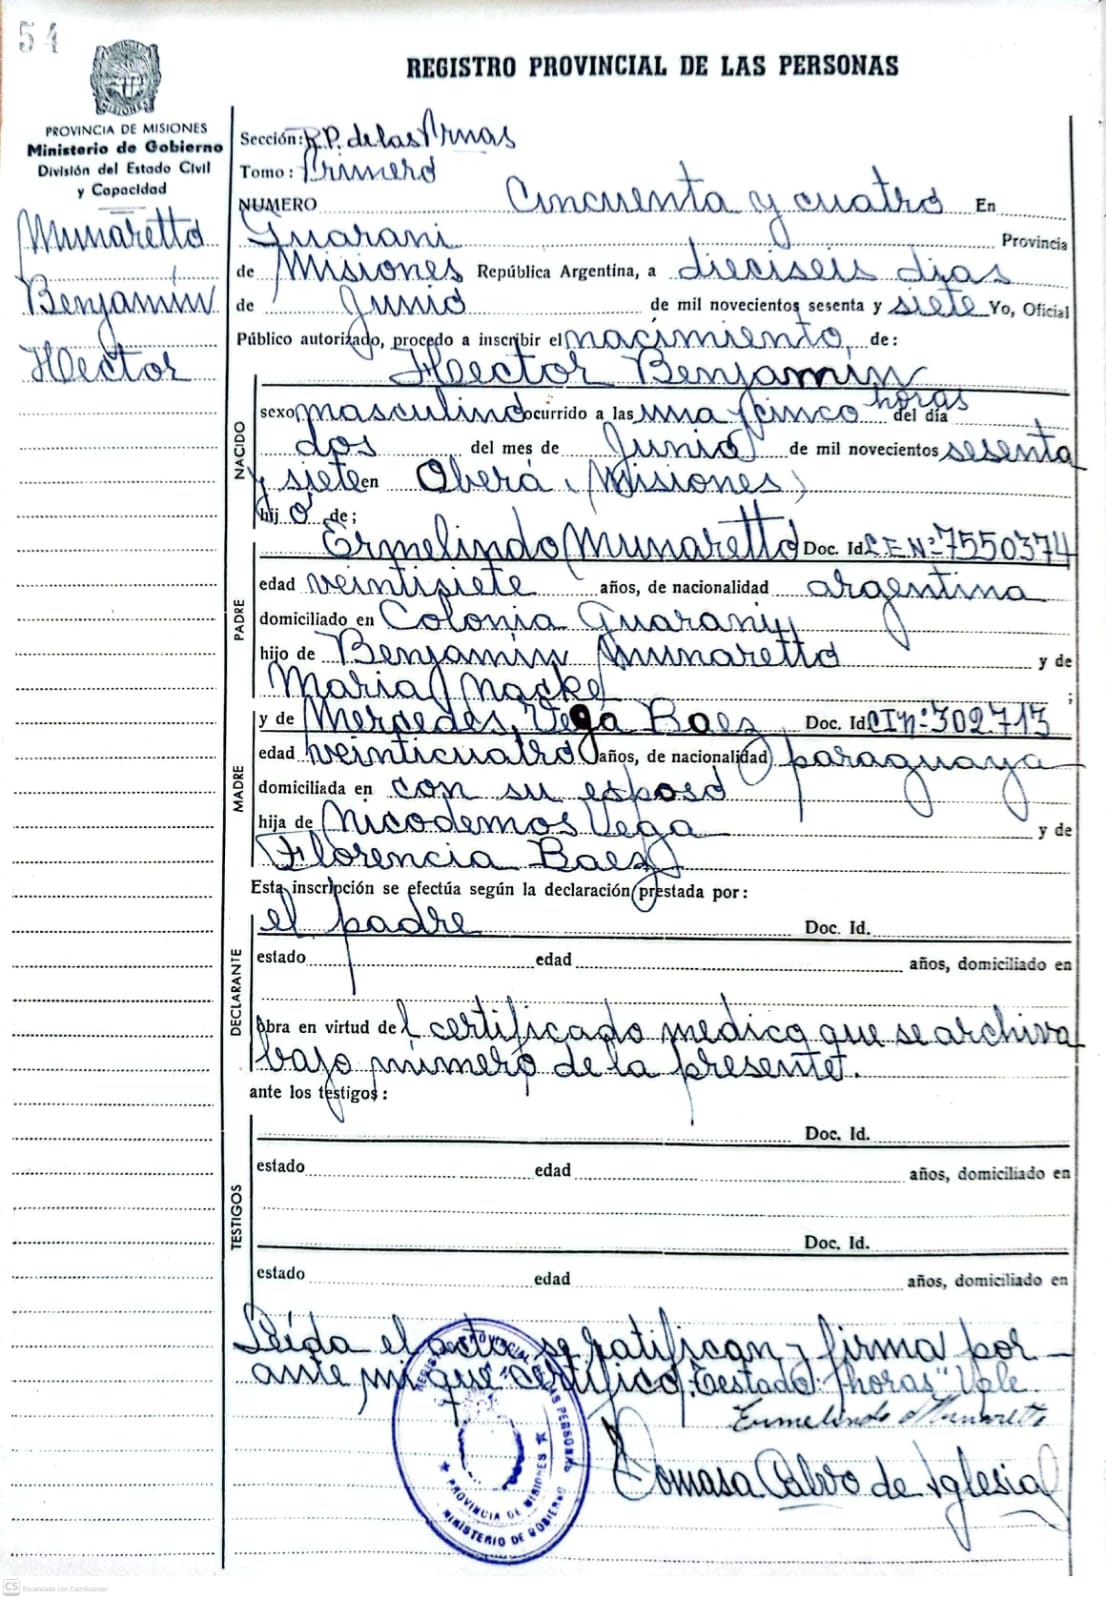 54
PROVINCIA DE MISIONES
Ministerio de Gobierno
División del Estado Civil
y Capacidad
Munaretto
Benjamín
Hector
REGISTRO PROVINCIAL DE LAS PERSONAS
Sección: R.P. de las Prnas
Tomo: Primero
NUMERO Cincuenta y cuatro En
Guarani Provincia
de Misiones República Argentina, a dieciseis dias
de Junio de mil novecientos sesenta y siete Yo, Oficial
Público autorizado, procedo a inscribir el nacimiento, de:
Hector Benjamín
NACIDO
sexo masculino ocurrido a las una y cinco horas del día
dos del mes de Junio de mil novecientos sesenta
y siete en Oberá (Misiones)
hijo de;
PADRE
Ermelindo Munaretto Doc. Id L.E.Nº: 7550374
edad veintisiete años, de nacionalidad argentina
domiciliado en Colonia Guarani
hijo de Benjamín Munaretto y de
Maria Nacke ;
MADRE
y de Mercedes Vega Baez Doc. Id CIn: 302.713
edad veinticuatro años, de nacionalidad paraguaya
domiciliada en con su esposo
hija de Nicodemos Vega y de
Florencia Baez
Esta inscripción se efectúa según la declaración prestada por:
DECLARANTE
el padre Doc. Id.
estado edad años, domiciliado en
obra en virtud del certificado medico que se archiva
bajo número de la presente.
ante los testigos:
TESTIGOS
Doc. Id.
estado edad años, domiciliado en
Doc. Id.
estado edad años, domiciliado en
Leída el acta se ratifican y firma por
ante mi que certifico. Testado: "horas" Vale.
Ermelindo Munaretto
Tomasa Calvo de Iglesia
REGISTRO PROVINCIAL DE LAS PERSONAS
PROVINCIA DE MISIONES
MINISTERIO DE GOBIERNO
CS Escaneado con CamScanner